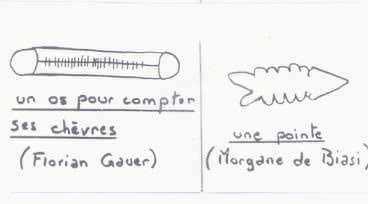 un os pour compter
ses chèvres
(Florian Gauer)
une pointe
(Morgane de Biasi)